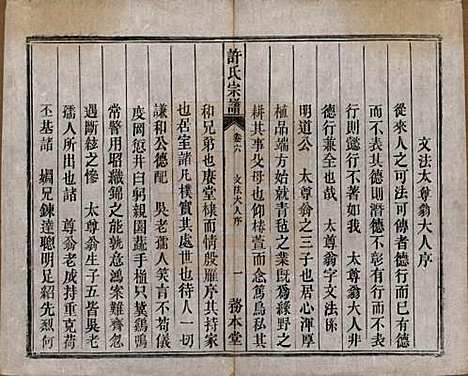 文法太尊翁大人序
從來人之可法可傳者德行而已有德
行則行無不善其德則潛德不已其行
行則懿行不以著　太尊翁大人非
德行兼全也哉　太尊翁字文法係
明道公　太尊翁之三子也居心渾厚
植品端方始就青毡之業既爲綠野之
耕其事父母也仰椿萱而篤烏私其
許氏宗譜
卷六
文法大人序
一
務本堂
和兄弟也庚堂棣而情殷雁序其持家
也居室諸凡樸實其處世也待人一切
謙和公德配　吳老孺人笑言不苟儀
度罔愆井臼躬親園蔬手植兄冀鷄鳴
常警用昭織錦之能孰意鴻案難齊忽
遇斷絃之慘　太尊翁生子五皆吳老
孺人所出也諸　尊翁老成持重克荷
丕基諸　嫺兄鍊達聰明足紹先烈何